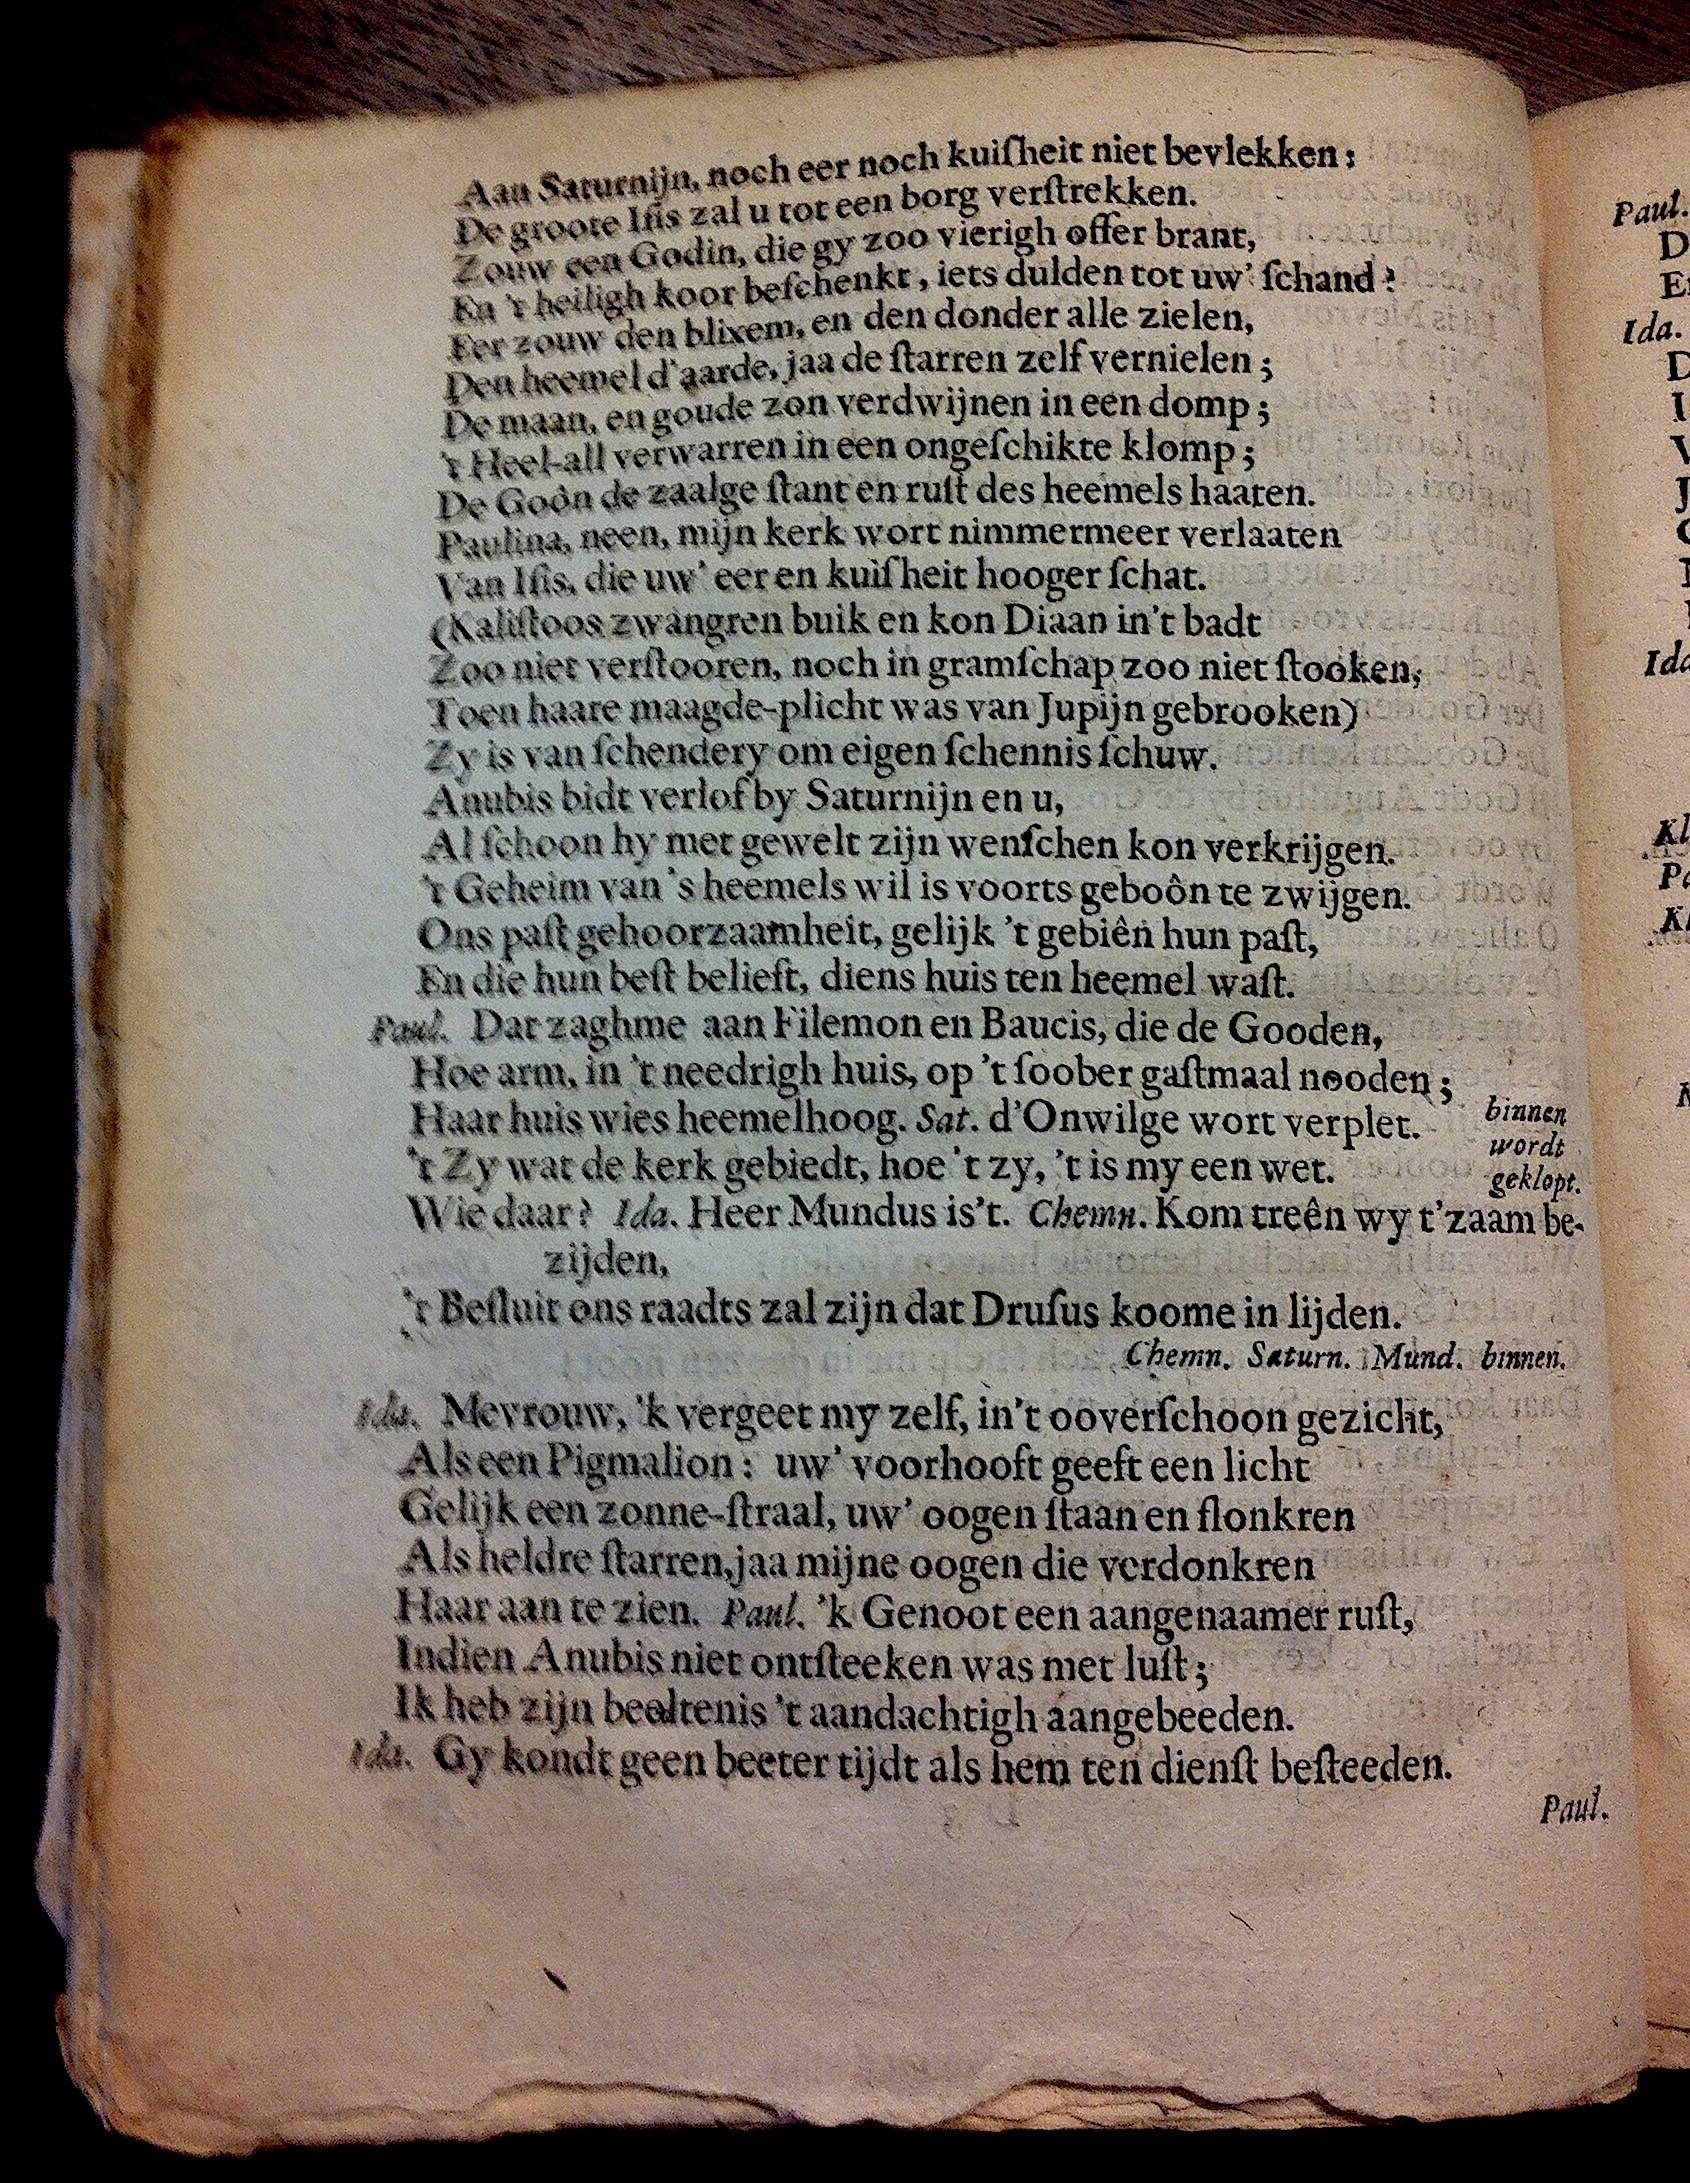 Aan Saturnijn, noch eer noch kuiſheit niet bevlekken:
De groote Iſis zal u tot een borg verſtrekken.
Zouw een Godin, die gy zoo vierigh offer brant,
En 't heiligh koor beſchenkt, iets dulden tot uw' ſchand?
Eer zouw den blixem, en den donder alle zielen,
Den heemel d'aarde, jaa de ſtarren zelf vernielen;
De maan, en goude zon verdwijnen in een domp;
't Heel-all verwarren in een ongeſchikte klomp;
De Goôn de zaalge ſtant en ruſt des heemels haaten.
Paulina, neen, mijn kerk wort nimmermeer verlaaten
Van Iſis, die uw' eer en kuiſheit hooger ſchat.
(Kaliſtoos zwangren buik en kon Diaan in't badt
Zoo niet verſtooren, noch in gramſchap zoo niet ſtooken,
Toen haare maagde-plicht was van Jupijn gebrooken)
Zy is van ſchendery om eigen ſchennis ſchuw.
Anubis bidt verlof by Saturnijn en u,
Al ſchoon hy met gewelt zijn wenſchen kon verkrijgen.
't Geheim van 's heemels wil is voorts geboôn te zwijgen.
Ons paſt gehoorzaamheit, gelijk 't gebiên hun paſt,
En die hun beſt belieft, diens huis ten heemel waſt.
Paul. Dat zaghme aan Filemon en Baucis, die de Gooden,
Hoe arm, in 't needrigh huis, op 't ſoober gaſtmaal nooden;
Haar huis wies heemelhoog. Sat. d'Onwilge wort verplet.
binnen
wordt
geklopt.
't Zy wat de kerk gebiedt, hoe 't zy, 't is my een wet.
Wie daar? Ida. Heer Mundus is't. Chemn. Kom treên wy t'zaam be-
zijden,
't Beſluit ons raadts zal zijn dat Druſus koome in lijden.
Chemn. Saturn. Mund. binnen.
Ida. Mevrouw, 'k vergeet my zelf, in't ooverſchoon gezicht,
Als een Pigmalion: uw' voorhooft geeft een licht
Gelijk een zonne-ſtraal, uw' oogen ſtaan en flonkren
Als heldre ſtarren, jaa mijne oogen die verdonkren
Haar aan te zien. Paul. 'k Genoot een aangenaamer ruſt,
Indien Anubis niet ontſteeken was met luſt;
Ik heb zijn beeltenis 't aandachtigh aangebeeden.
Ida. Gy kondt geen beeter tijdt als hem ten dienſt beſteeden.
Paul.
Paul.
Ida.